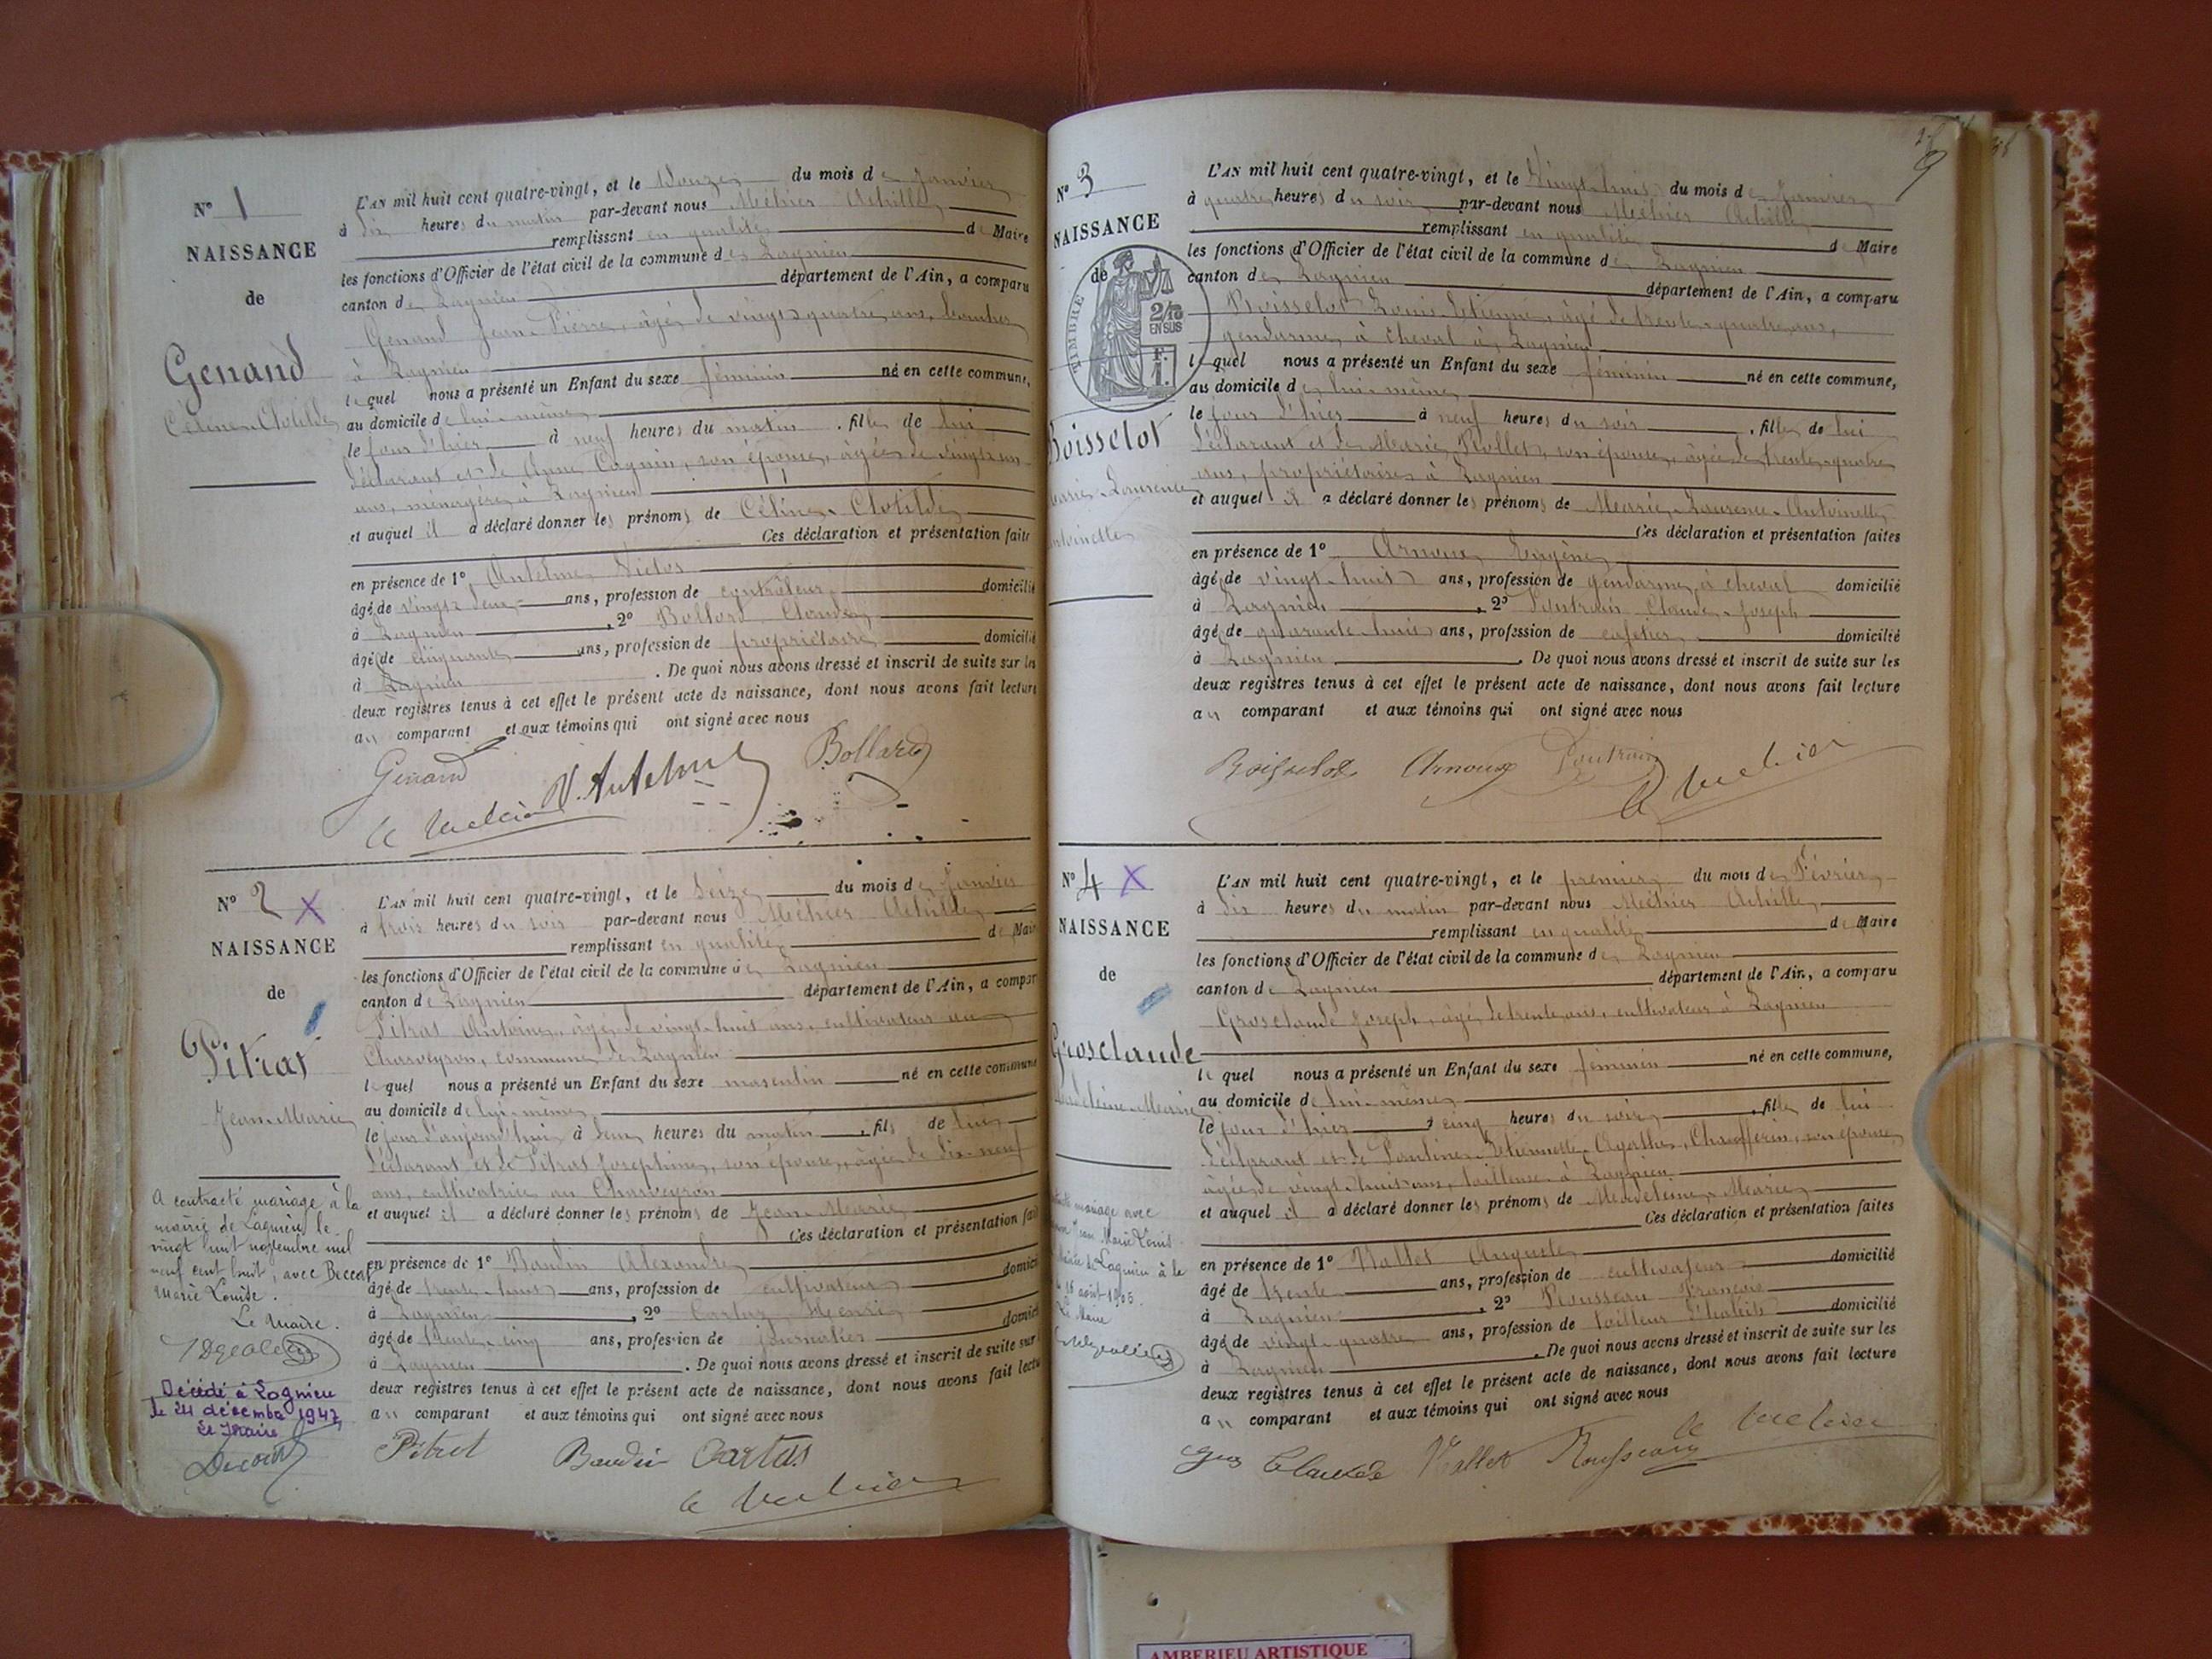 N° 1
NAISSANCE
de
Genand
Céline-Clotilde
L'AN mil huit cent quatre-vingt, et le Douze du mois de Janvier
à dix heures du matin par-devant nous Méhier Achille
remplissant en qualité de Maire
les fonctions d'Officier de l'état civil de la commune de Lagnieu
canton de Lagnieu département de l'Ain, a comparu
Genand Jean-Pierre, âgé de vingt-quatre ans,
à Lagnieu
lequel nous a présenté un Enfant du sexe féminin né en cette commune,
au domicile de lui-même
le jour d'hier à neuf heures du matin, fille de lui
déclarant et de Anne Cognin, son épouse, âgée de vingt-un
ans, ménagère à Lagnieu
et auquel il a déclaré donner les prénoms de Céline-Clotilde
Ces déclaration et présentation faites
en présence de 1° Antelme Victor
âgé de vingt-deux ans, profession de contrôleur domicilié
à Lagnieu, 2° Bollard Claude
âgé de cinquante ans, profession de propriétaire domicilié
à Lagnieu. De quoi nous avons dressé et inscrit de suite sur les
deux registres tenus à cet effet le présent acte de naissance, dont nous avons fait lecture
au comparant et aux témoins qui ont signé avec nous
Genand V. Antelme Bollard
A Méhier
N° 2 X
NAISSANCE
de
Pitrat
Jean-Marie
A contracté mariage à la
mairie de Lagnieu le
vingt huit novembre mil
neuf cent huit, avec Beccat
Marie Louise.
Le Maire.
Décédé à Lagnieu
le 24 décembre 1947
Le Maire
L'AN mil huit cent quatre-vingt, et le Seize du mois de Janvier
à trois heures du soir par-devant nous Méhier Achille
remplissant en qualité de Maire
les fonctions d'Officier de l'état civil de la commune de Lagnieu
canton de Lagnieu département de l'Ain, a compar
Pitrat Antoine, âgé de vingt-huit ans, cultivateur au
Charveyron, commune de Lagnieu
lequel nous a présenté un Enfant du sexe masculin né en cette commune
au domicile de lui-même
le jour d'aujourd'hui à deux heures du matin, fils de lui
déclarant et de Pitrat Josephine, son épouse, âgée de dix-neuf
ans, cultivatrice au Charveyron
et auquel il a déclaré donner les prénoms de Jean-Marie
Ces déclaration et présentation fai
en présence de 1° Baudin Alexandre
âgé de trente-huit ans, profession de cultivateur domici
à Lagnieu, 2° Cartaz Henri
âgé de trente-cinq ans, profession de journalier domici
à Lagnieu. De quoi nous avons dressé et inscrit de suite sur l
deux registres tenus à cet effet le présent acte de naissance, dont nous avons fait lectu
au comparant et aux témoins qui ont signé avec nous
Pitrat Baudin Cartas
A Méhier
N° 3
NAISSANCE
de
TIMBRE
2/10
EN SUS
F.
1.
Boisselot
Marie-Laurence
Antoinette
L'AN mil huit cent quatre-vingt, et le Vingt-huit du mois de Janvier
à quatre heures du soir par-devant nous Méhier Achille
remplissant en qualité de Maire
les fonctions d'Officier de l'état civil de la commune de Lagnieu
canton de Lagnieu département de l'Ain, a comparu
Boisselot Louis-Etienne, âgé de trente-quatre ans,
gendarme à cheval à Lagnieu
lequel nous a présenté un Enfant du sexe féminin né en cette commune,
au domicile de lui-même
le jour d'hier à neuf heures du soir, fille de lui
déclarant et de Marie Rollet, son épouse, âgée de trente-quatre
ans, propriétaire à Lagnieu
et auquel il a déclaré donner les prénoms de Marie-Laurence-Antoinette
Ces déclaration et présentation faites
en présence de 1° Arnoux Eugène
âgé de vingt-huit ans, profession de gendarme à cheval domicilié
à Lagnieu, 2° Claude-Joseph
âgé de quarante-huit ans, profession de cafetier domicilié
à Lagnieu. De quoi nous avons dressé et inscrit de suite sur les
deux registres tenus à cet effet le présent acte de naissance, dont nous avons fait lecture
au comparant et aux témoins qui ont signé avec nous
Boisselot Arnoux A Méhier
N° 4 X
NAISSANCE
de
Grosclaude
Madeleine-Marie
mariage avec
Jean Marie Louis
Lagnieu à le
16 août 1905.
Le Maire
L'AN mil huit cent quatre-vingt, et le premier du mois de Février
à dix heures du matin par-devant nous Méhier Achille
remplissant en qualité de Maire
les fonctions d'Officier de l'état civil de la commune de Lagnieu
canton de Lagnieu département de l'Ain, a comparu
Grosclaude Joseph, âgé de trente ans, cultivateur à Lagnieu
lequel nous a présenté un Enfant du sexe féminin né en cette commune,
au domicile de lui-même
le jour d'hier à cinq heures du soir, fille de lui
déclarant et de Pauline-Etiennette-Agathe Chaufferin, son épouse
âgée de vingt-huit ans, tailleuse à Lagnieu
et auquel il a déclaré donner les prénoms de Madeleine-Marie
Ces déclaration et présentation faites
en présence de 1° Vallet Auguste domicilié
âgé de trente ans, profession de cultivateur
à Lagnieu, 2° Rousseau François
âgé de vingt-quatre ans, profession de tailleur d'habits domicilié
à Lagnieu. De quoi nous avons dressé et inscrit de suite sur les
deux registres tenus à cet effet le présent acte de naissance, dont nous avons fait lecture
au comparant et aux témoins qui ont signé avec nous
Gros Claude Vallet Rousseau A Méhier
AMBERIEU ARTISTIQUE